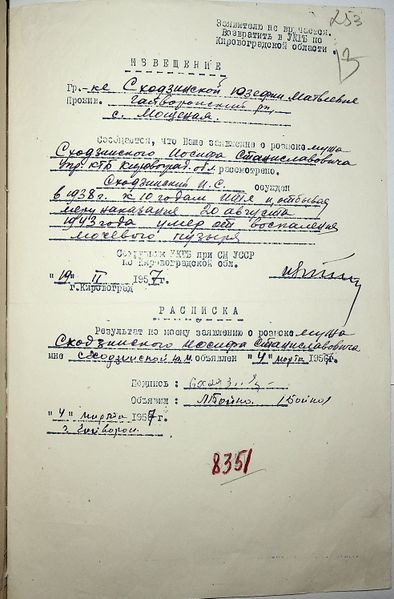 253
Заявителю не вручается.
Возвратить в УКГБ по
Кировоградской области.
ИЗВЕЩЕНИЕ
Гр.-ке Сходзинской Юзефии Матвеевне
Прожив. Гайворонский р-н,
с. Мощеная.
Сообщается, что Ваше заявление о розыске мужа
Сходзинского Иосифа Станиславовича
Упр. КГБ Кировоград. обл. рассмотрено.
Сходзинский И.С. осужден
в 1938 г. к 10 годам ИТЛ и, отбывая
меру наказания 20 августа
1943 года умер от воспаления
мочевого пузыря
Сотрудник УКГБ при СМ УССР
по Кировоградской обл.
"19" II 1957 г.
г.Кировоград
РАСПИСКА
Результат по моему заявлению о розыске мужа
Сходзинского Иосифа Станиславовича
мне Сходзинской Ю.М. объявлен "4" марта 195 г.
Подпись :
Объявил : Л Бойко (Бойко)
"4" марта 1957 г.
г. Гайворон.
8351